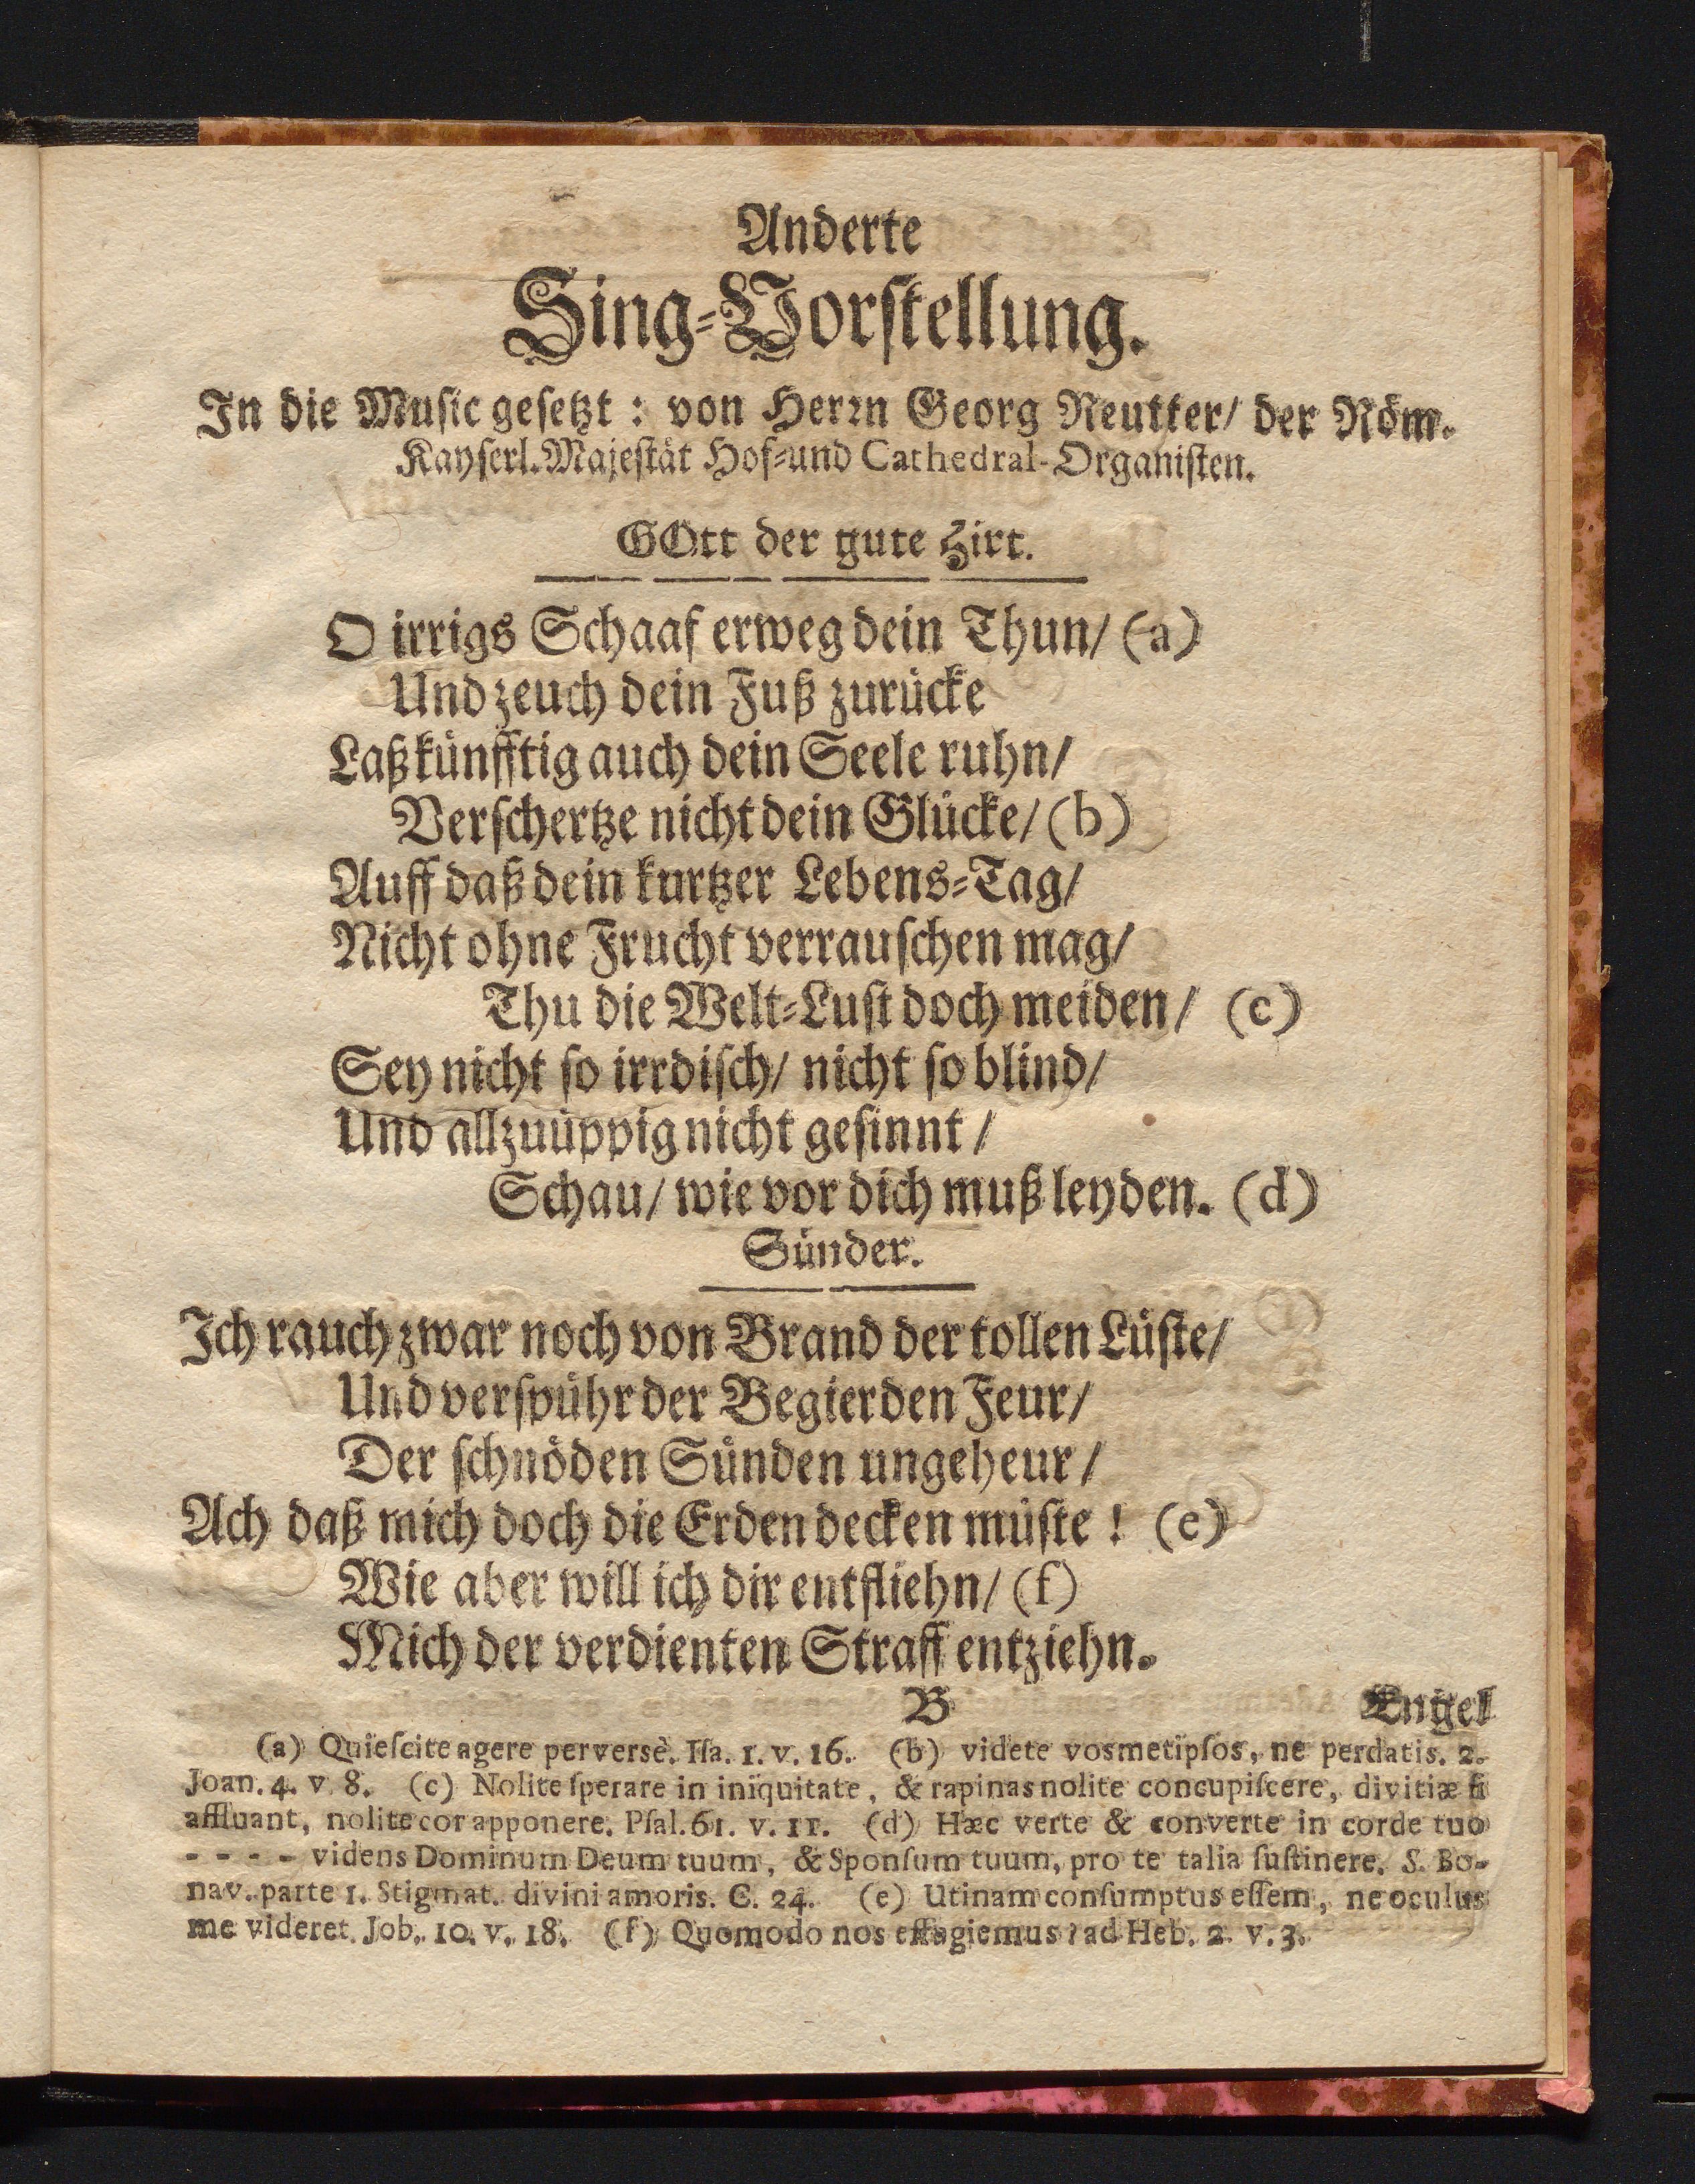 Anderte
Sing-Vorſtellung.
In die Muſic geſetzt: von Herrn Georg Reutter/ der Röm.
Kayſerl. Majeſtät Hof-und Cathedral-Organiſten.
GOtt der gute Hirt.
O irrigs Schaaf erweg dein Thun/ (a)
Und zeuch dein Fuß zurücke
Laß künfftig auch dein Seele ruhn/
Verſchertze nicht dein Glücke/ (b)
Auff daß dein kurtzer Lebens-Tag/
Nicht ohne Frucht verrauſchen mag/
Thu die Welt-Luſt doch meiden/ (c)
Sey nicht ſo irrdiſch/ nicht ſo blind/
Und allzuüppig nicht geſinnt/
Schau/ wie vor dich muß leyden. (d)
Sünder.
Ich rauch zwar noch von Brand der tollen Lüſte/
Und verſpühr der Begierden Feur/
Der ſchnöden Sünden ungeheur/
Ach daß mich doch die Erden decken müſte! (e)
Wie aber will ich dir entfliehn/ (f)
Mich der verdienten Straff entziehn.
B Engel
(a) Quieſcite agere perversè. Iſa. 1. v. 16. (b) videte vosmetipſos, ne perdatis. 2.
Joan. 4. v. 8. (c) Nolite ſperare in iniquitate, & rapinas nolite concupiſcere, divitiæ ſi
affluant, nolite cor apponere. Pſal. 61. v. 11. (d) Hæc verte & converte in corde tuo
- - - - videns Dominum Deum tuum, & Sponſum tuum, pro te talia ſuſtinere. S. Bo-
nav. parte 1. Stigmat. divini amoris. C. 24. (e) Utinam conſumptus eſſem, ne oculus
me videret. Job. 10. v. 18. (f) Quomodo nos effugiemus? ad Heb. 2. v. 3.